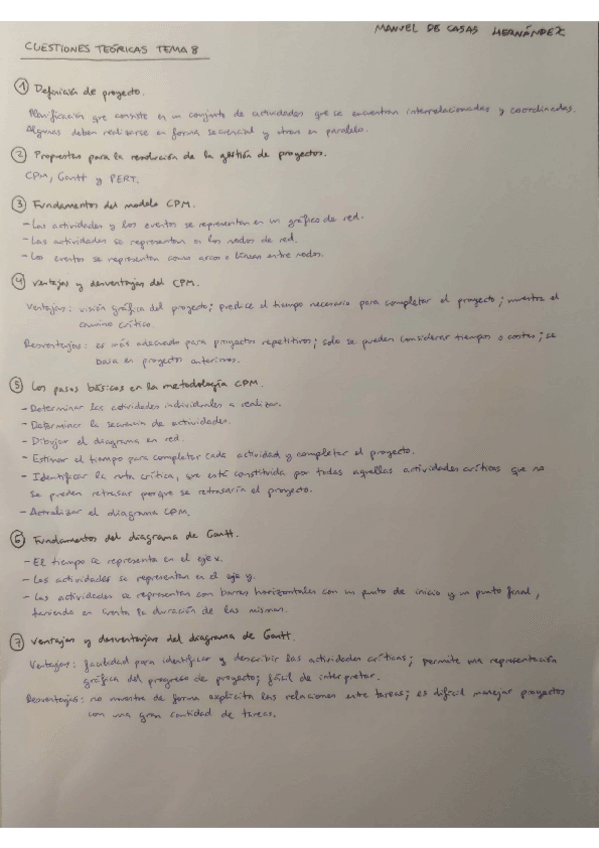 MANUEL DE CASAS HERNÁNDEZ
CUESTIONES TEÓRICAS TEMA 8
① Definición de proyecto.
Planificación que consiste en un conjunto de actividades que se encuentran interrelacionadas y coordinadas.
Algunas deben realizarse en forma secuencial y otras en paralelo.
② Propuestas para la resolución de la gestión de proyectos.
CPM, Gantt y PERT.
③ Fundamentos del modelo CPM.
- Las actividades y los eventos se representan en un gráfico de red.
- Las actividades se representan en los nodos de red.
- Los eventos se representan como arcos o líneas entre nodos.
④ Ventajas y desventajas del CPM.
Ventajas: visión gráfica del proyecto; predice el tiempo necesario para completar el proyecto; muestra el
camino crítico.
Desventajas: es más adecuado para proyectos repetitivos; solo se pueden considerar tiempos o costes; se
basa en proyectos anteriores.
⑤ Los pasos básicos en la metodología CPM.
- Determinar las actividades individuales a realizar.
- Determinar la secuencia de actividades.
- Dibujar el diagrama en red.
- Estimar el tiempo para completar cada actividad y completar el proyecto.
- Identificar la ruta crítica, que está constituida por todas aquellas actividades críticas que no
se pueden retrasar porque se retrasaría el proyecto.
- Actualizar el diagrama CPM.
⑥ Fundamentos del diagrama de Gantt.
- El tiempo se representa en el eje x.
- Las actividades se representan en el eje y.
- Las actividades se representan con barras horizontales con un punto de inicio y un punto final,
teniendo en cuenta la duración de las mismas.
⑦ Ventajas y desventajas del diagrama de Gantt.
Ventajas: facilidad para identificar y describir las actividades críticas; permite una representación
gráfica del progreso de proyecto; fácil de interpretar.
Desventajas: no muestra de forma explícita las relaciones entre tareas; es difícil manejar proyectos
con una gran cantidad de tareas.